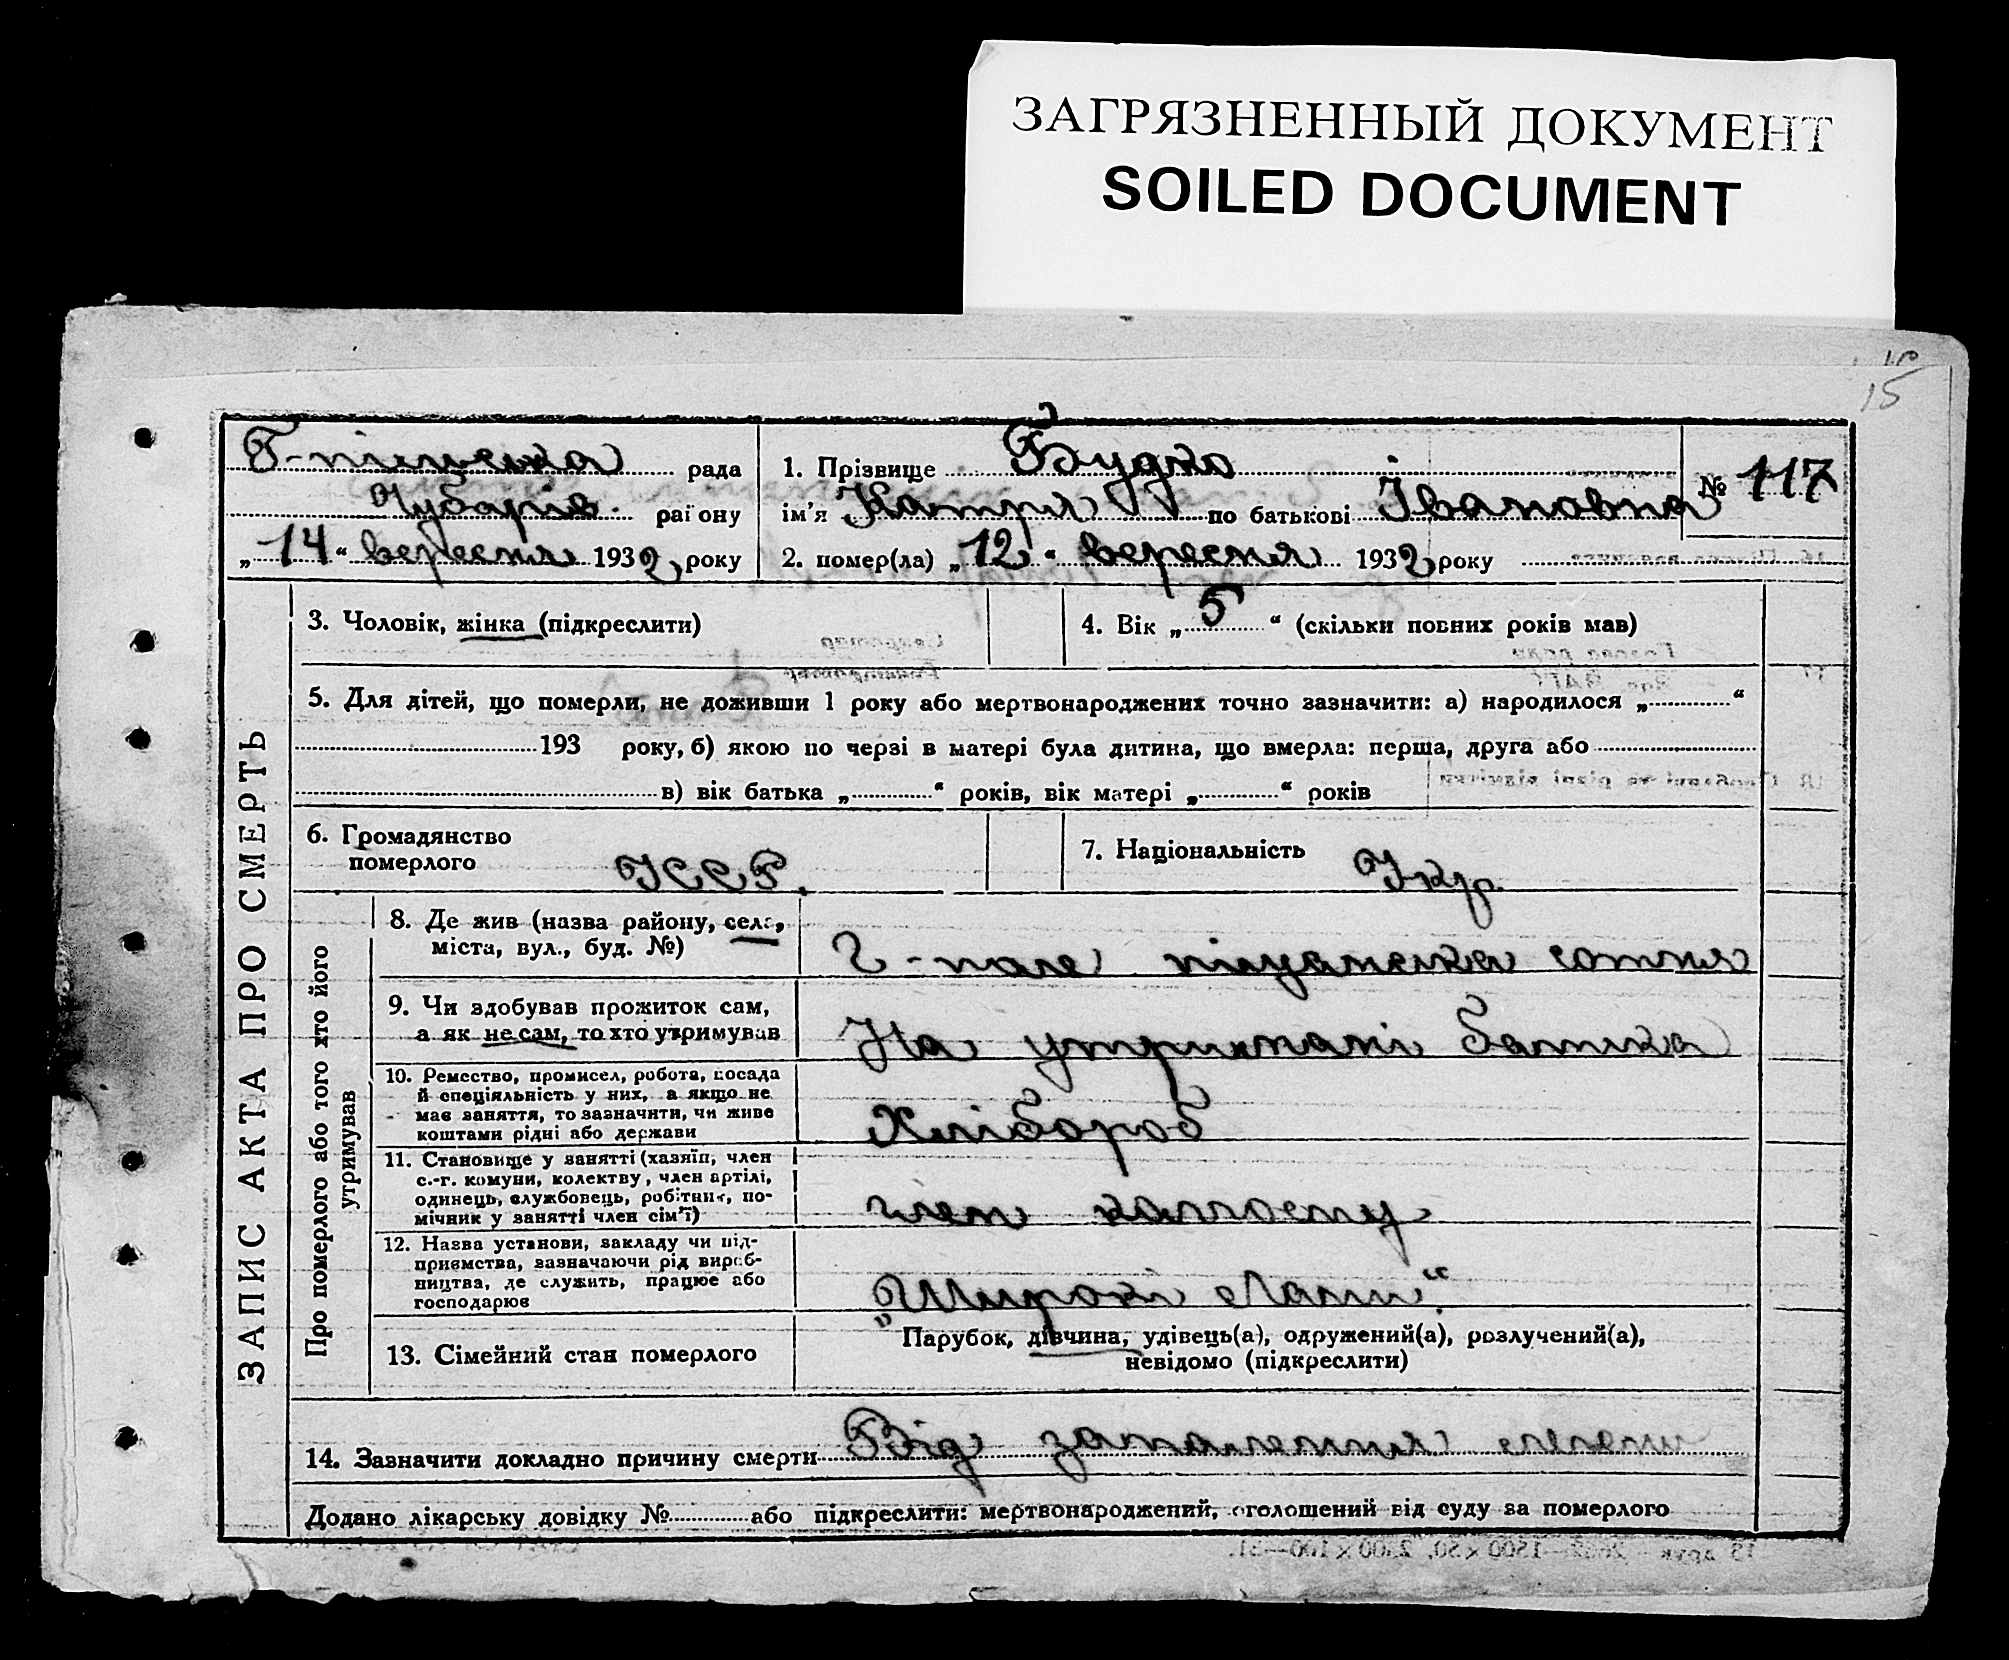 ЗАГРЯЗНЕННЫЙ ДОКУМЕНТ
SOILED DOCUMENT
15
рада
Чубарів. району
„14“ вересня 1932 року
1. Прізвище Будко
ім'я Катря по батькові Івановна
2. помер(ла) „12“ вересня 1932 року
№ 117
ЗАПИС АКТА ПРО СМЕРТЬ
3. Чоловік, жінка (підкреслити)
4. Вік „5“ (скільки повних років мав)
5. Для дітей, що померли, не доживши 1 року або мертвонароджених точно зазначити: а) народилося „ “
193 року, б) якою по черзі в матері була дитина, що вмерла: перша, друга або
в) вік батька „ “ років, вік матері „ “ років
6. Громадянство
померлого УССР.
7. Національність Укр.
Про померлого або того хто його
утримував
8. Де жив (назва району, села,
міста, вул., буд. №)
Г-поле піщанська сотня
9. Чи здобував прожиток сам,
а як не сам, то хто утримував
На утриманні батька
10. Ремество, промисел, робота, посада
й спеціяльність у них, а якщо не
має заняття, то зазначити, чи живе
коштами рідні або держави
Хлібороб
11. Становище у занятті (хазяїн, член
с.-г. комуни, колективу, член артілі,
одинець, службовець, робітник, по-
мічник у занятті член сім'ї)
член колгоспу
12. Назва установи, закладу чи під-
приємства, зазначаючи рід вироб-
ництва, де служить, працює або
господарює
„Широкі Лани“.
13. Сімейний стан померлого
Парубок, дівчина, удівець(а), одружений(а), розлучений(а),
невідомо (підкреслити)
14. Зазначити докладно причину смерти Від запалення
Додано лікарську довідку № або підкреслити: мертвонароджений, оголошений від суду за померлого